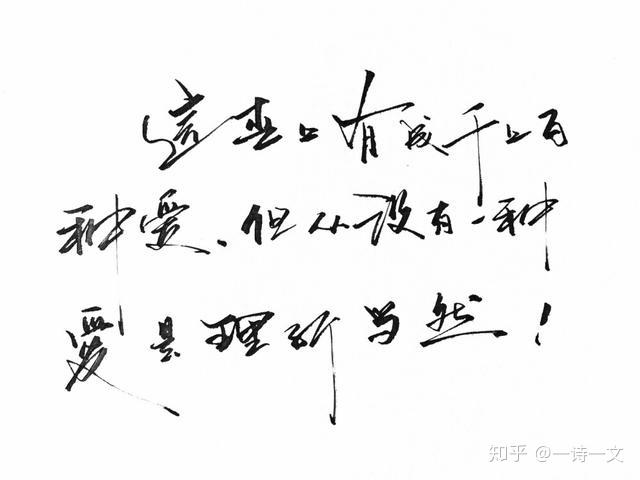 這世上有成千上百
种爱、但从没有一种
爱是理所当然！
知乎 @一诗一文